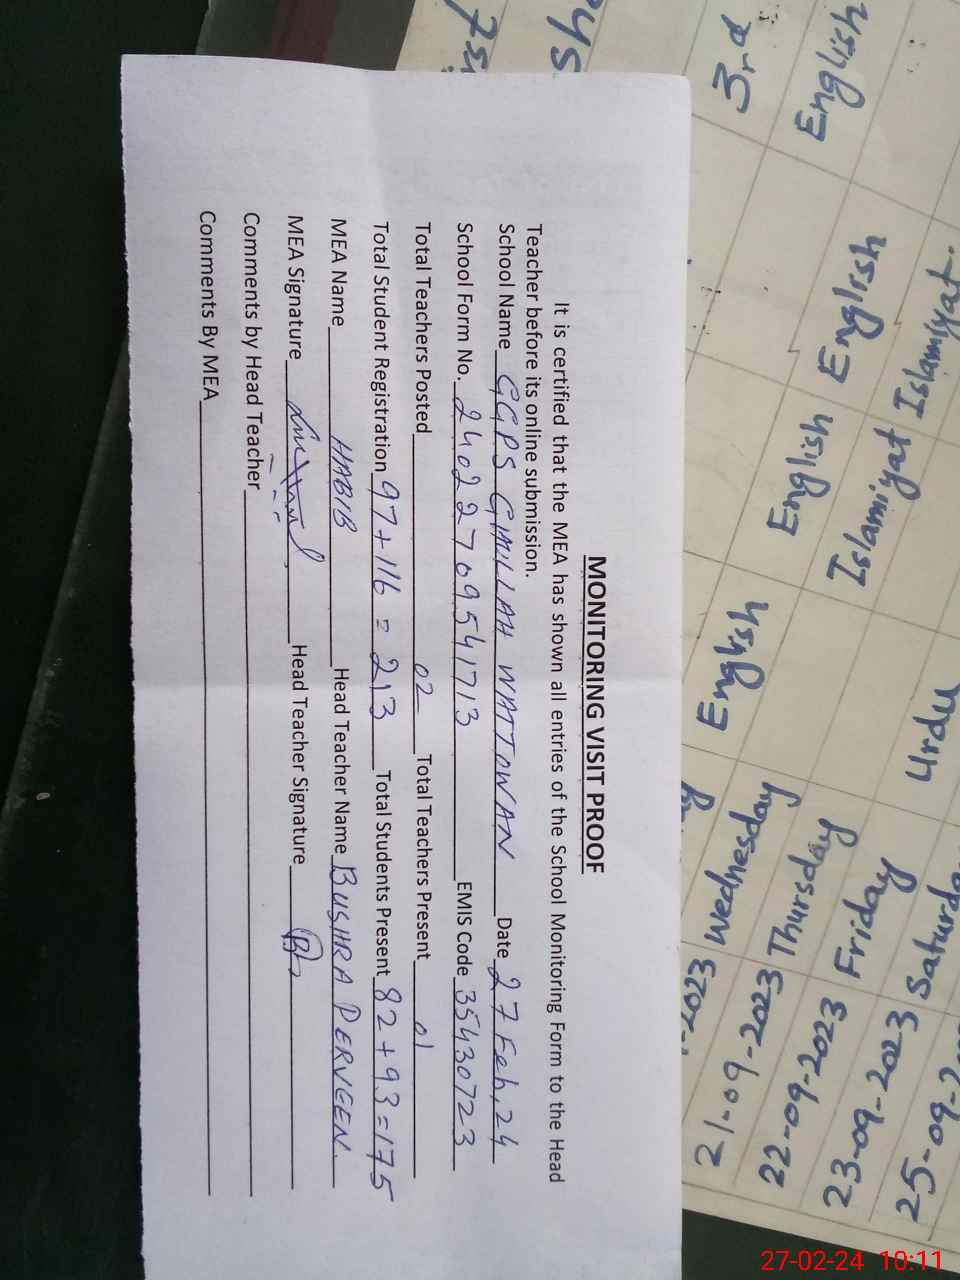 MONITORING VISIT PROOF
It is certified that the MEA has shown all entries of the School Monitoring Form to the Head
Teacher before its online submission.
School Name GGPS GIMILLAH WATTOWAN Date 27 Feb, 24
School Form No. 24022709541713 EMIS Code 35430723
Total Teachers Posted 02 Total Teachers Present 01
Total Student Registration 97+116 = 213 Total Students Present 82+93=175
MEA Name HABIB Head Teacher Name BUSHRA PERVEEN.
MEA Signature Head Teacher Signature
Comments by Head Teacher
Comments By MEA
3rd
English
2023 Wednesday English
21-09-2023 Thursday English English
22-09-2023 Friday Islamiyat Islamiyat.
23-09-2023 Saturday Urdu
25-09-2
27-02-24 10:11